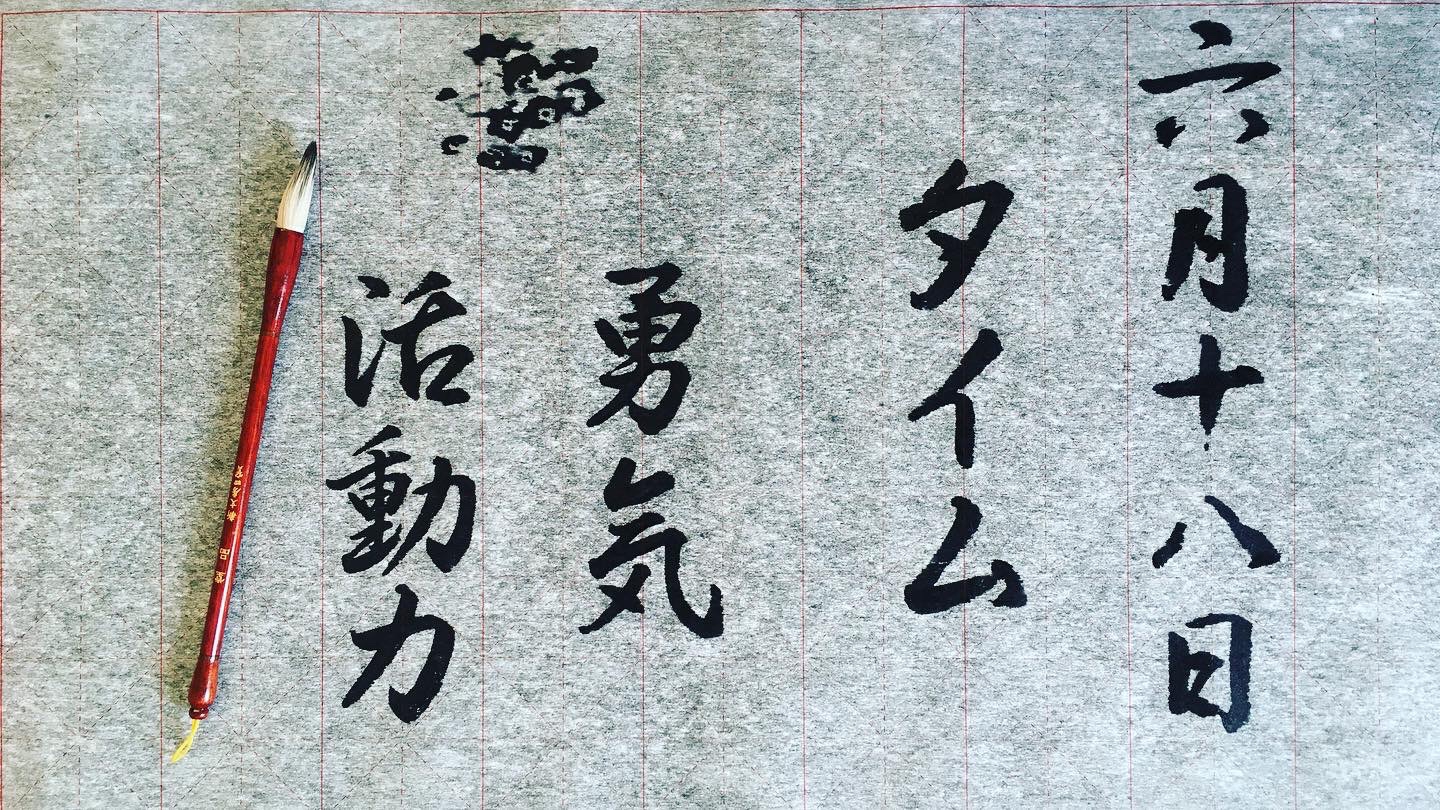 六月十八日
タイム
勇気
活動力